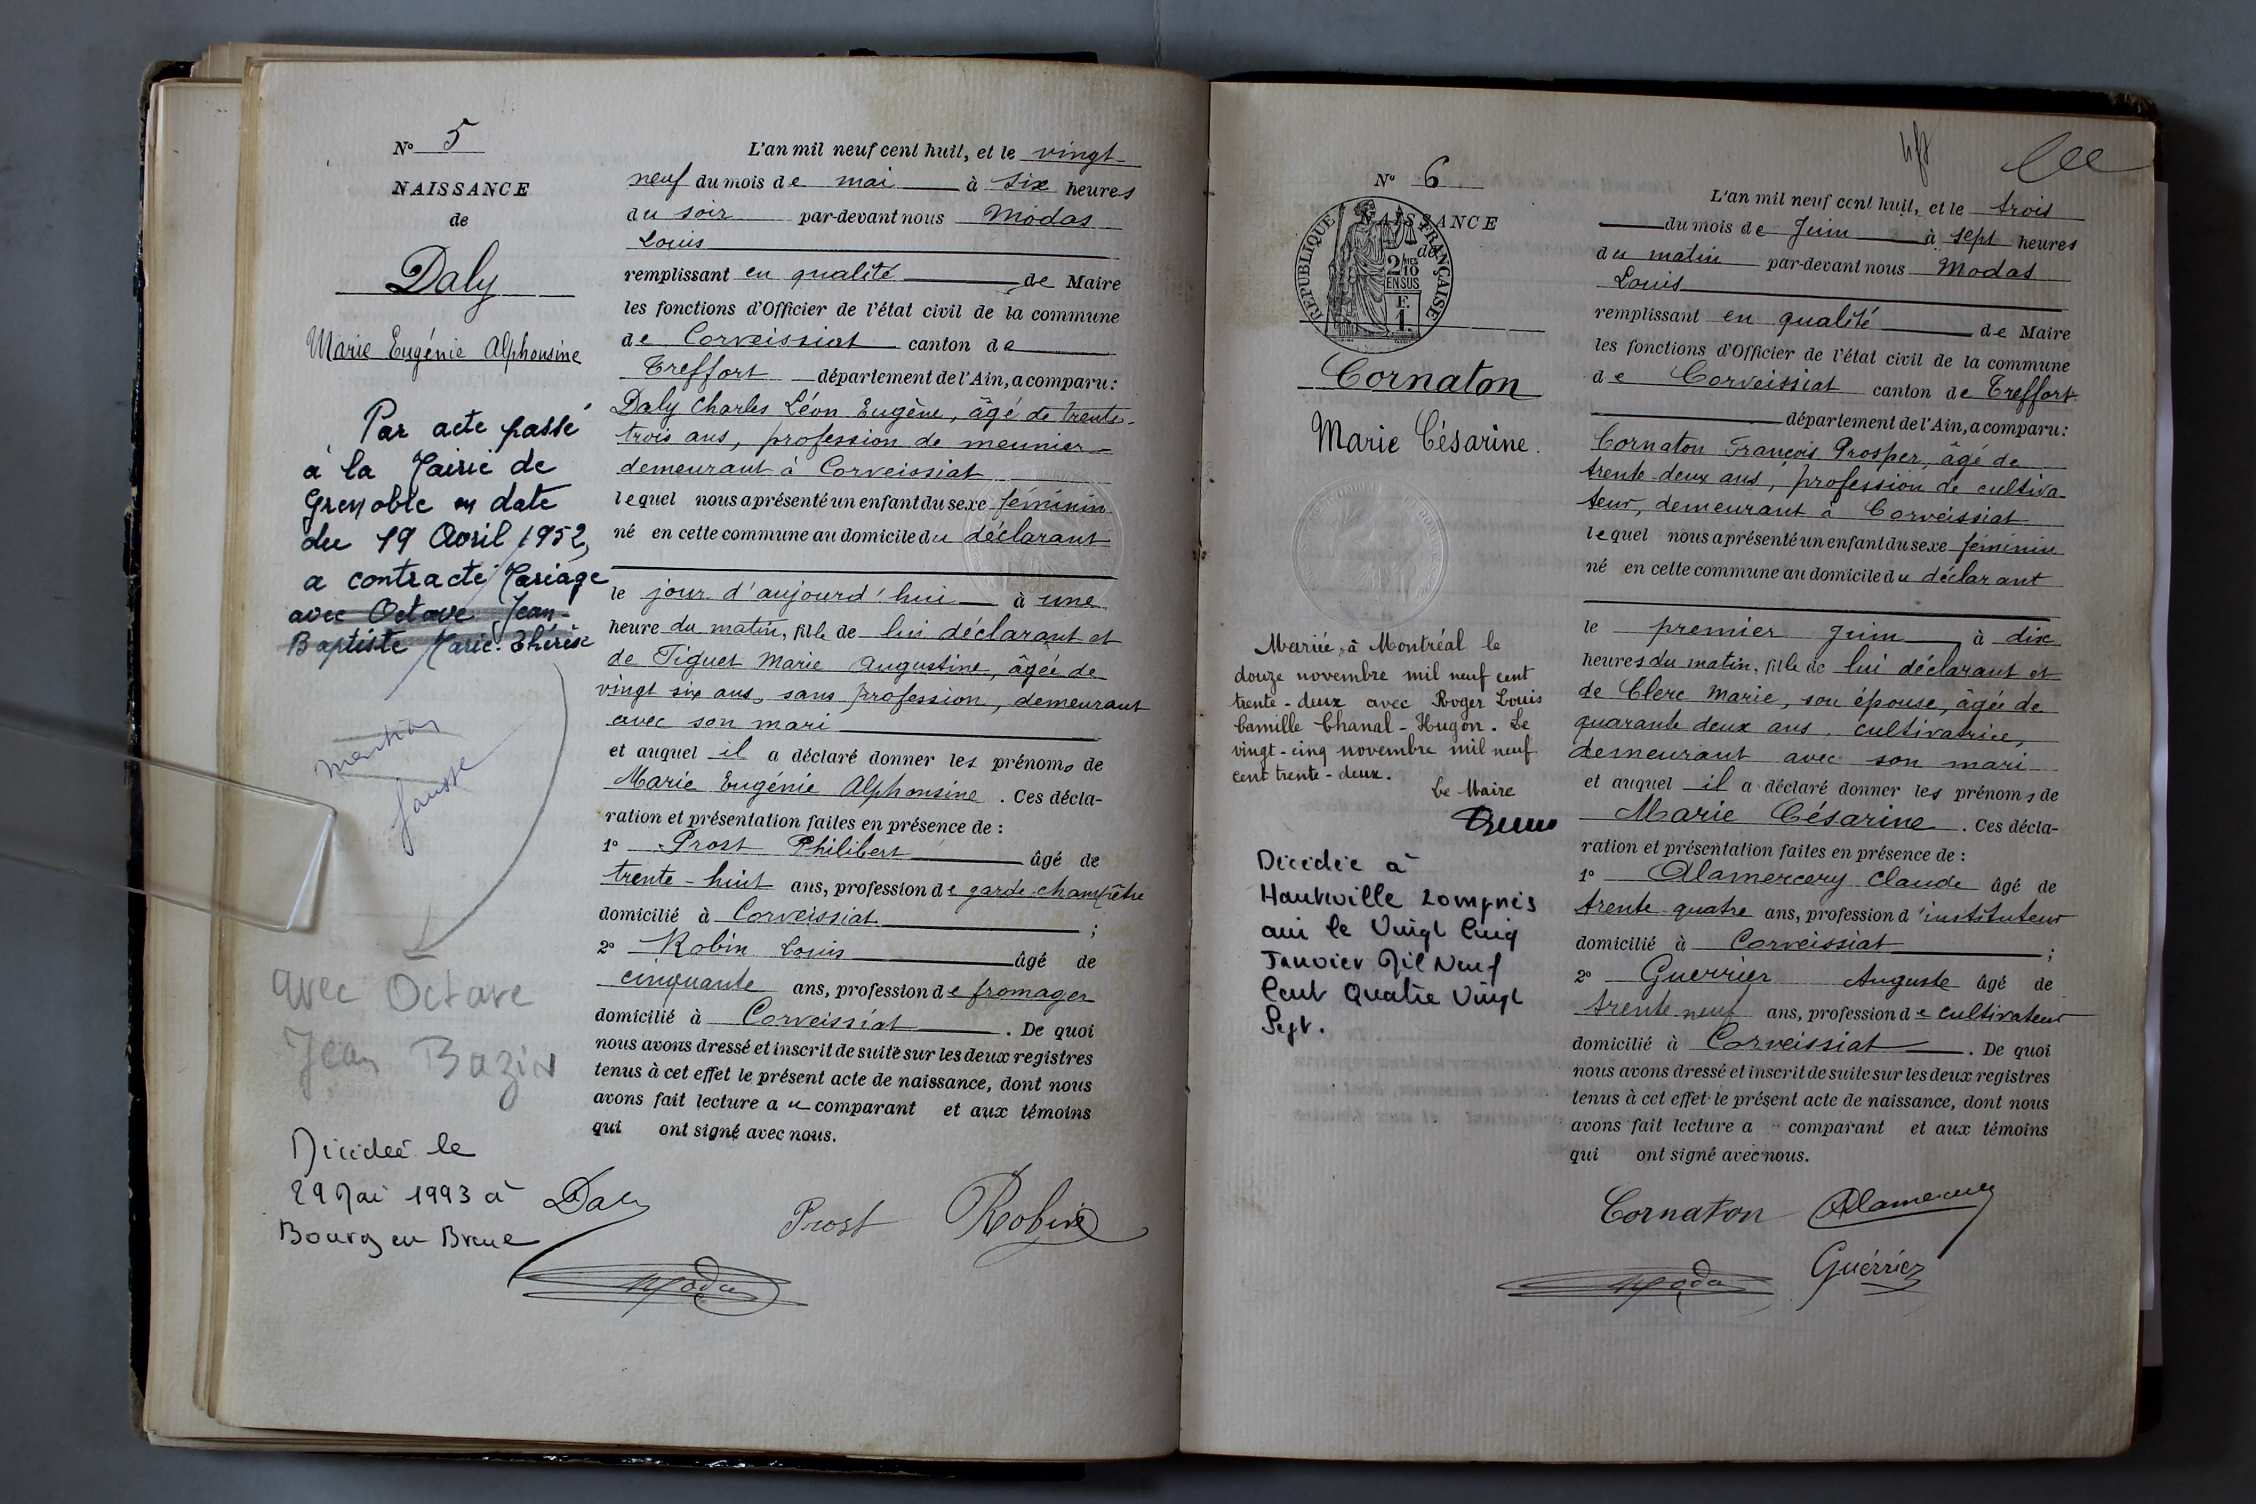 N° 5
NAISSANCE
de
Daly
Marie Eugénie Alphonsine
Par acte passé
à la Mairie de
Grenoble en date
du 19 Avril 1952,
a contracté Mariage
avec Octave Jean
Baptiste Marie Thérèse
mention
fausse
avec Octave
Jean Bazin
Décédée le
29 Mai 1993 à
Bourg en Bresse
L'an mil neuf cent huit, et le vingt
neuf du mois de mai à six heures
du soir par-devant nous Modas
Louis
remplissant en qualité de Maire
les fonctions d'Officier de l'état civil de la commune
de Corveissiat canton de
Treffort département de l'Ain, a comparu :
Daly Charles Léon Eugène, âgé de trente-
trois ans, profession de meunier
demeurant à Corveissiat
lequel nous a présenté un enfant du sexe féminin
né en cette commune au domicile du déclarant
le jour d'aujourd'hui à une
heure du matin, fille de lui déclarant et
de Tiguet Marie Augustine, âgée de
vingt six ans, sans profession, demeurant
avec son mari
et auquel il a déclaré donner les prénoms de
Marie Eugénie Alphonsine. Ces décla-
ration et présentation faites en présence de :
1° Prost Philibert âgé de
trente-huit ans, profession de garde-champêtre
domicilié à Corveissiat ;
2° Robin Louis âgé de
cinquante ans, profession de fromager
domicilié à Corveissiat. De quoi
nous avons dressé et inscrit de suite sur les deux registres
tenus à cet effet le présent acte de naissance, dont nous
avons fait lecture au comparant et aux témoins
qui ont signé avec nous.
Daly Prost Robin
Modas
N° 6
NAISSANCE
de
RÉPUBLIQUE FRANÇAISE
2/10 EN SUS
F. 1.
Cornaton
Marie Césarine.
Mariée à Montréal le
douze novembre mil neuf cent
trente-deux avec Roger Louis
Camille Chanal-Hugon. Le
vingt-cinq novembre mil neuf
cent trente-deux.
Le Maire
Décédée à
Hauteville Lompnes
ain le Vingt Cinq
Janvier Mil Neuf
Cent Quatre Vingt
Sept.
L'an mil neuf cent huit, et le trois
du mois de Juin à sept heures
du matin par-devant nous Modas
Louis
remplissant en qualité de Maire
les fonctions d'Officier de l'état civil de la commune
de Corveissiat canton de Treffort
département de l'Ain, a comparu :
Cornaton François Prosper, âgé de
trente-deux ans, profession de cultiva-
teur, demeurant à Corveissiat
lequel nous a présenté un enfant du sexe féminin
né en cette commune au domicile du déclarant
le premier Juin à dix
heures du matin, fille de lui déclarant et
de Clerc Marie, son épouse, âgée de
quarante deux ans, cultivatrice,
demeurant avec son mari
et auquel il a déclaré donner les prénoms de
Marie Césarine. Ces décla-
ration et présentation faites en présence de :
1° Alamercery Claude âgé de
trente-quatre ans, profession d'instituteur
domicilié à Corveissiat ;
2° Guerrier Auguste âgé de
trente neuf ans, profession de cultivateur
domicilié à Corveissiat. De quoi
nous avons dressé et inscrit de suite sur les deux registres
tenus à cet effet le présent acte de naissance, dont nous
avons fait lecture a comparant et aux témoins
qui ont signé avec nous.
Cornaton Alamercery
Modas Guérrier